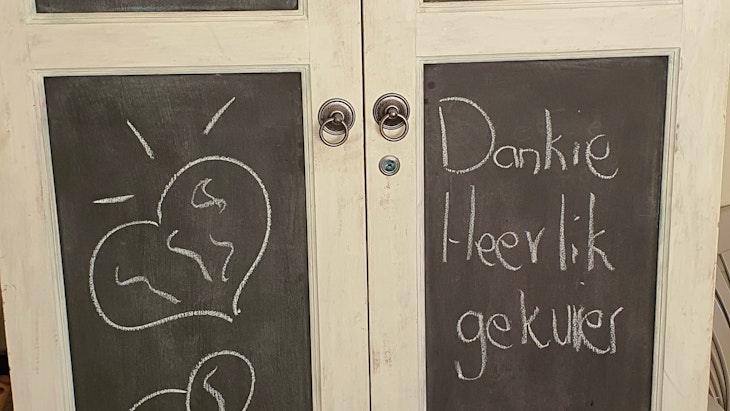 Dankie
Heerlik
gekuier